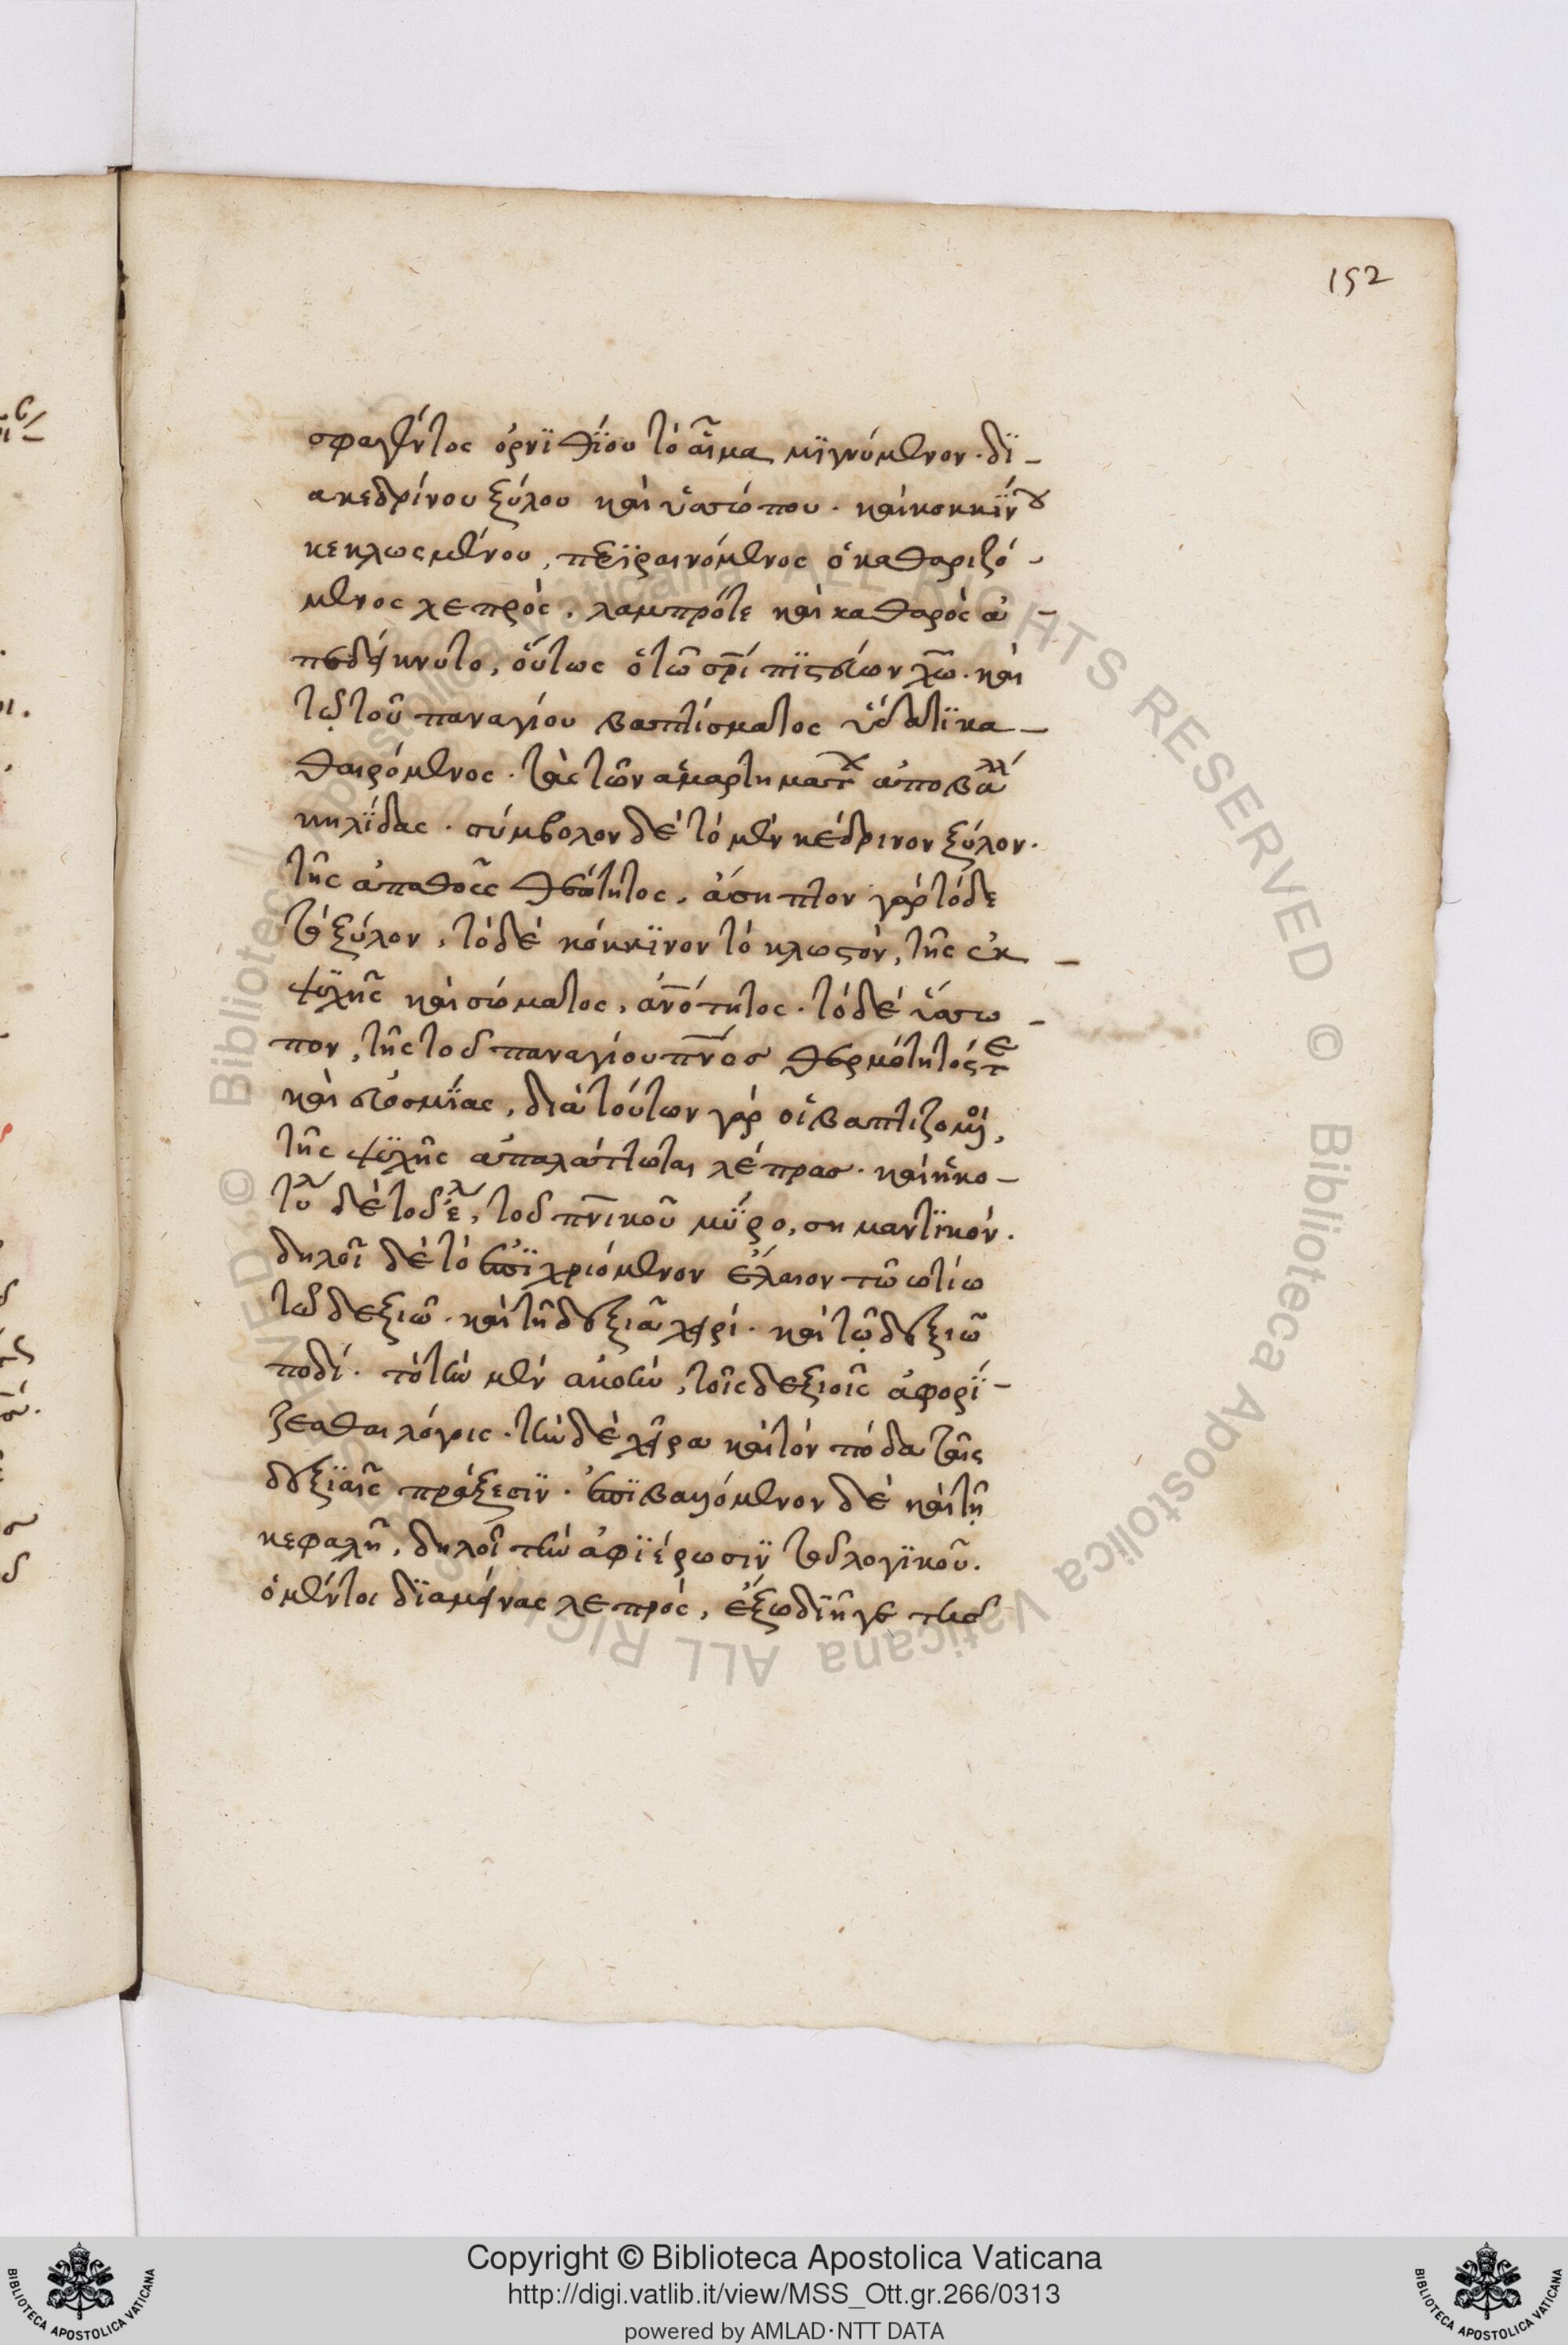 152
σφαγέντος ὀρνϊθΐου τὸ αἷμα μϊγνύμενον· δϊ-
α κεδρίνου ξύλου καὶ ὑσσώπου· καὶ κοκκΐνου
κεκλωςμένου, περϊραινόμενος ὁ καθαριζό-
μενος λεπρὸς, λαμπρός τε καὶ καθαρὸς ἀ-
πεδείκνυτο, οὕτως ὁ τῶ σρί πϊςεύων χῶ· καὶ
τῷ τοῦ παναγίου βαπτίσματος ὕδατϊ κα-
θαιρόμενος· τὰς τῶν ἁμαρτημάτ ἀποβάλλ
κηλΐδας· σύμβολον δὲ τὸ μὲν κέδρινον ξύλον·
τῆς ἀπαθοῦς θεότητος, ἄσηπτον γὰρ τόδε
τὸ ξύλον, τὸ δὲ κόκκϊνον τὸ κλωςὸν, τῆς ἐκ-
ψϋχῆς καὶ σώματος, ἀνότητος· τὸ δὲ ὕσσω-
πον, τῆς τοῦ παναγίου πνός θερμότητός τε
καὶ εὐοσμΐας, διὰ τούτων γὰρ οἱ βαπτιζομοι,
τῆς ψϋχῆς ἀπαλάττωται λέπρας· καὶ ἡ κο-
τύλ δὲ τοῦ ἐλ, τοῦ πνικοῦ μΰρο, σημαντϊκόν·
δηλοῖ δὲ τὸ ἐπϊχριόμενον ἔλαιον τῶ ὠτίω
τῶ δεξιῶ· καὶ τῆ δεξιᾶ χειρί· καὶ τῷ δεξιῶ
ποδί· τὸ τὴν μὲν ἀκοὴν, τοῖς δεξιοῖς ἀφορΐ-
ζεσθαι λόγοις· τὴν δὲ χεῖρα καὶ τὸν πόδα ταῖς
δεξϊαῖς πράξεσϊν· ἐπϊβαλλόμενον δὲ καὶ τῇ
κεφαλῆ, δηλοῖ τὴν ἀφϊέρωσιν τοῦ λογϊκοῦ.
ὁ μέντοι δϊαμείνας λεπρὸς, ἔξω διῆγε τῆς
Copyright © Biblioteca Apostolica Vaticana
http://digi.vatlib.it/view/MSS_Ott.gr.266/0313
powered by AMLAD·NTT DATA